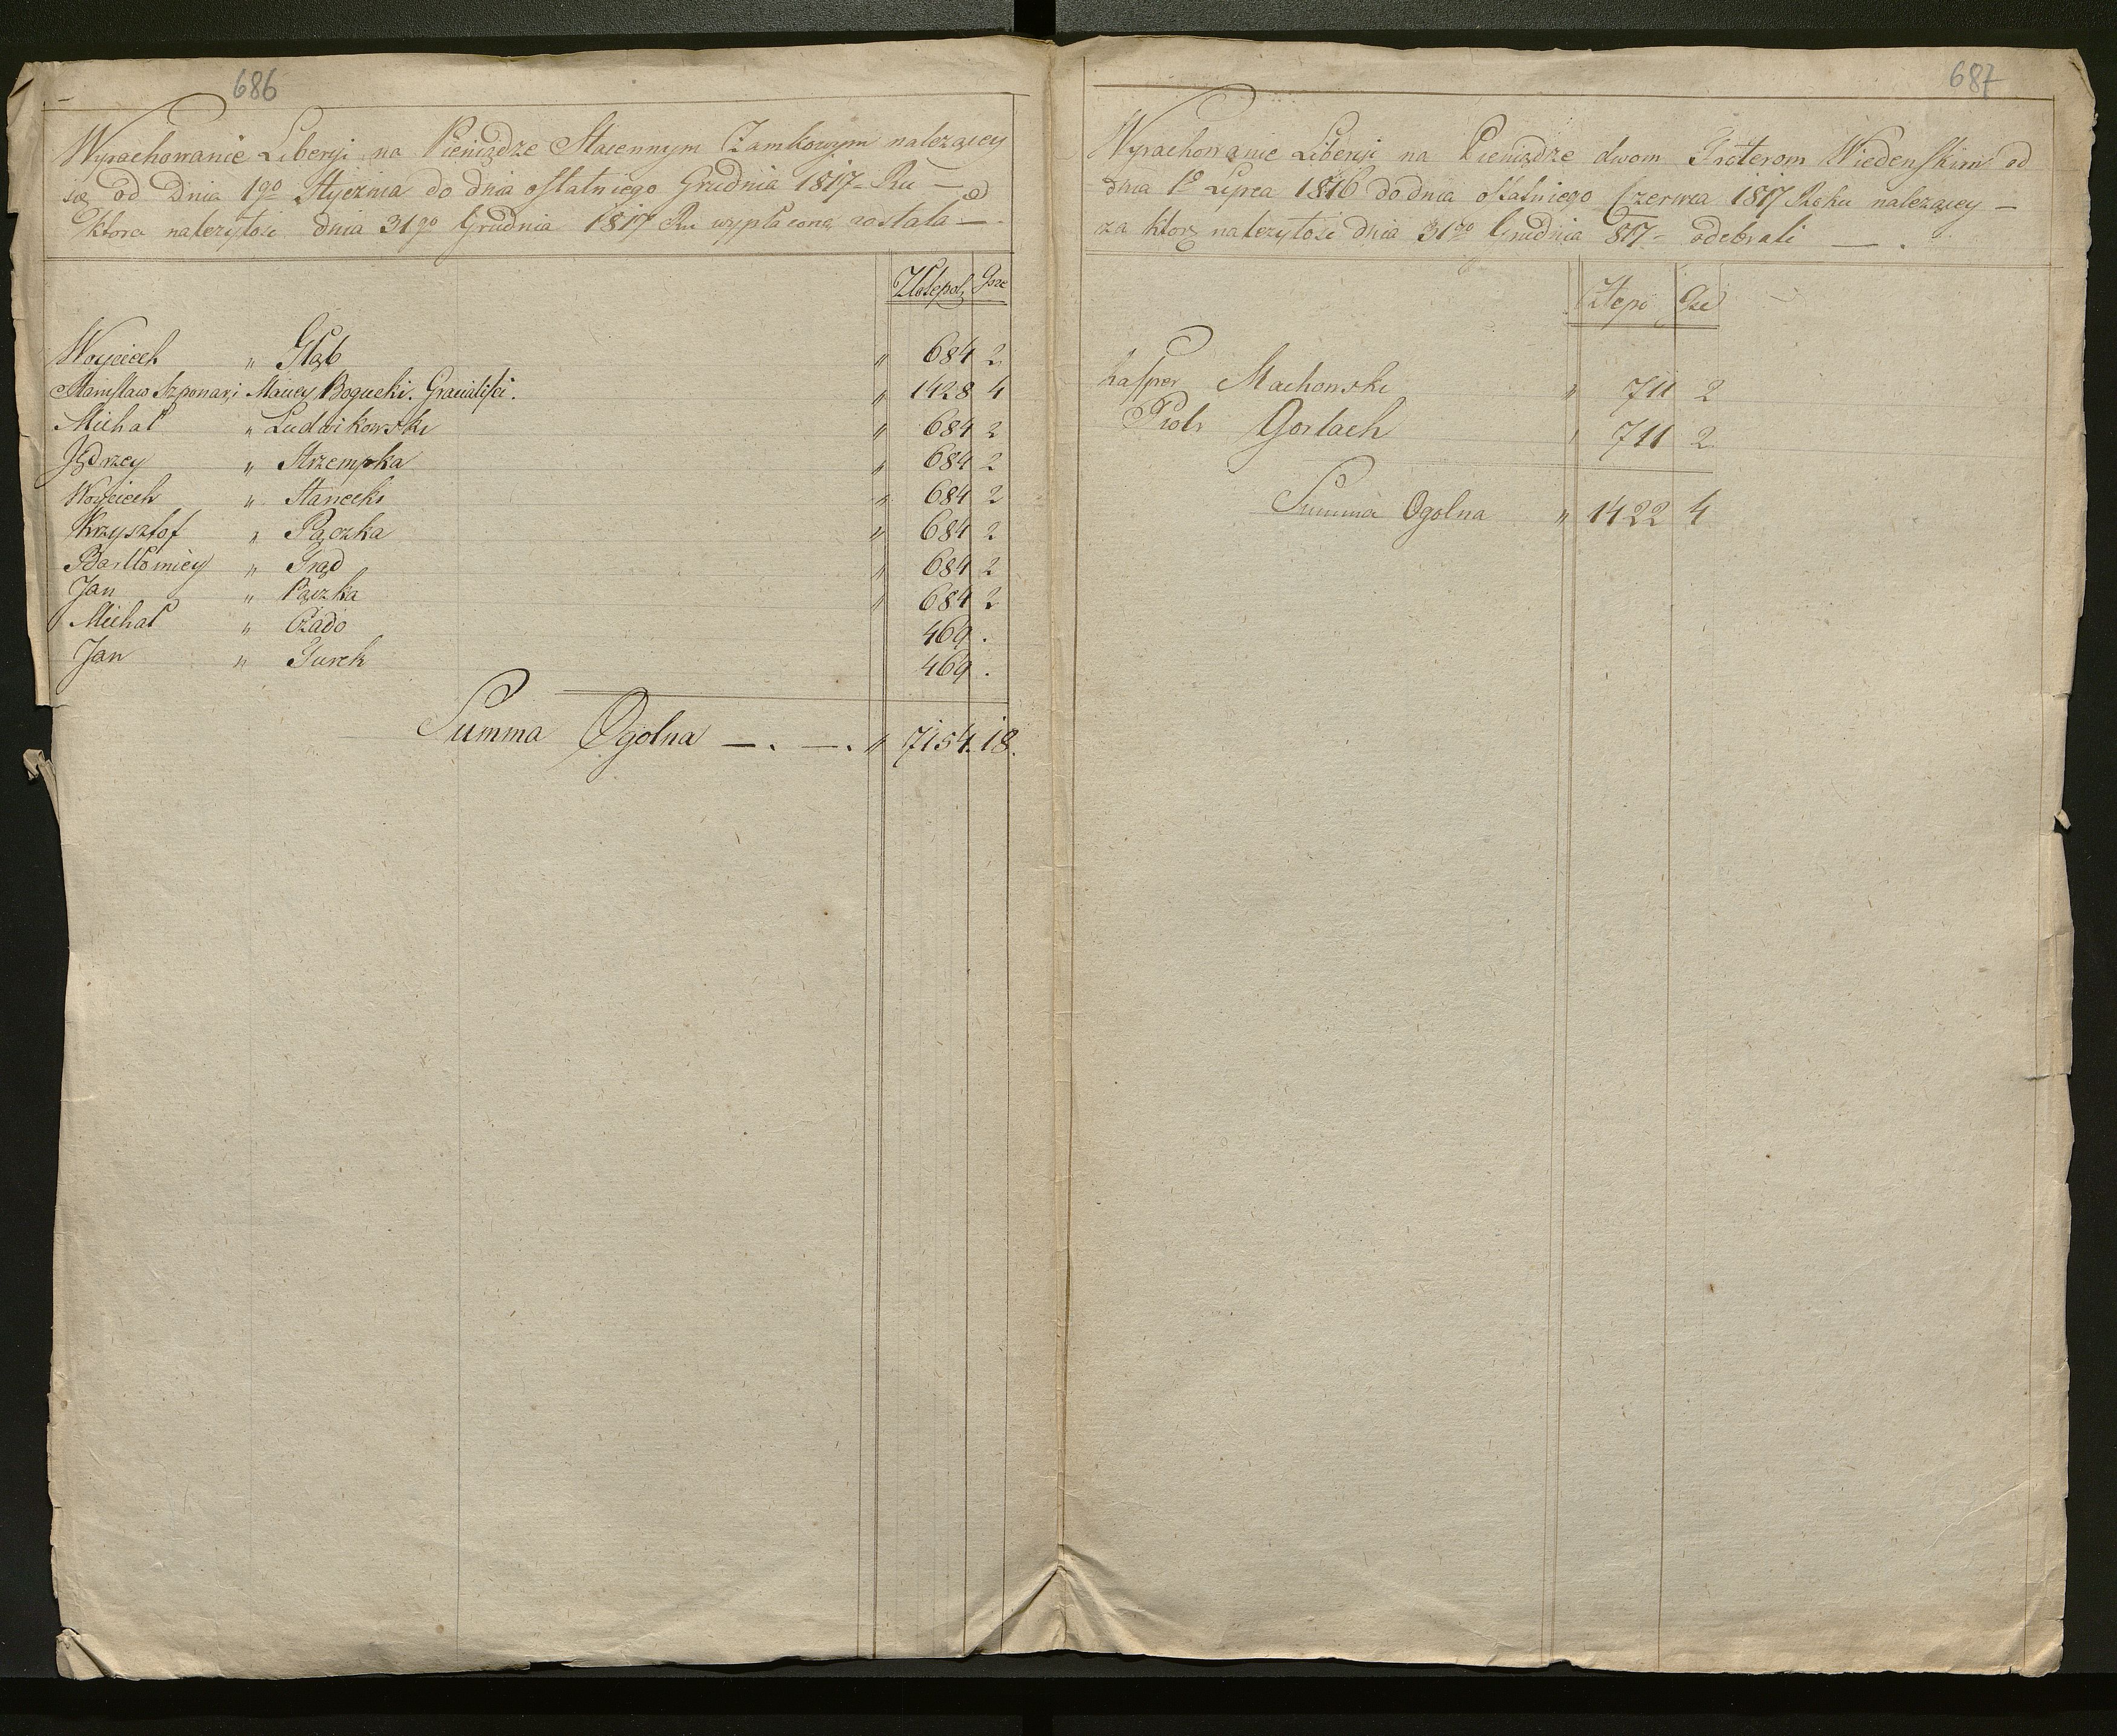 686
Wyrachowanie Liberyi na Pieniądze Stacennym Zamkowym należącey
się od Dnia 1go Stycznia do dnia ostatniego Grudnia 1817 Ru — od
ktora należytość dnia 31go Grudnia 1817 Ru wypłaconą została —
Złotepol Grze
Woyciech " Głąb " 684 2
Stanisław Szponar, i Maciey Bogucki. Gracialiści. " 1428 4
Michał " Ludwikowski " 684 2
Jędrzey " Strzempka " 684 2
Woyciech " Stanecki " 684 2
Krzysztof " Pączka " 684 2
Bartłomiey " Grąd " 684 2
Jan " Pączka " 684 2
Michał " Ożado 469 .
Jan " Gurek 469 .
Summa Ogolna — . — . " 7154. 18.
687
Wyrachowanie Liberyi na Pieniądze dwom Froterom Wiedenskim od
dnia 1o Lipca 1816 do dnia ostatniego Czerwca 1817 Roku należącey —
za ktorą należytość dnia 31go Grudnia 817 — odebrali — .
Złepo Gze
Kasper Machowski " 711 2
Piotr Gorlach " 711 2
Summa Ogolna " 1422 4